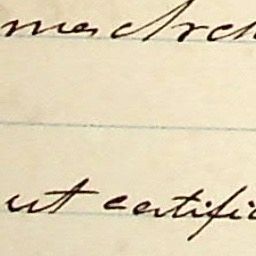 mes Arch
ut certific